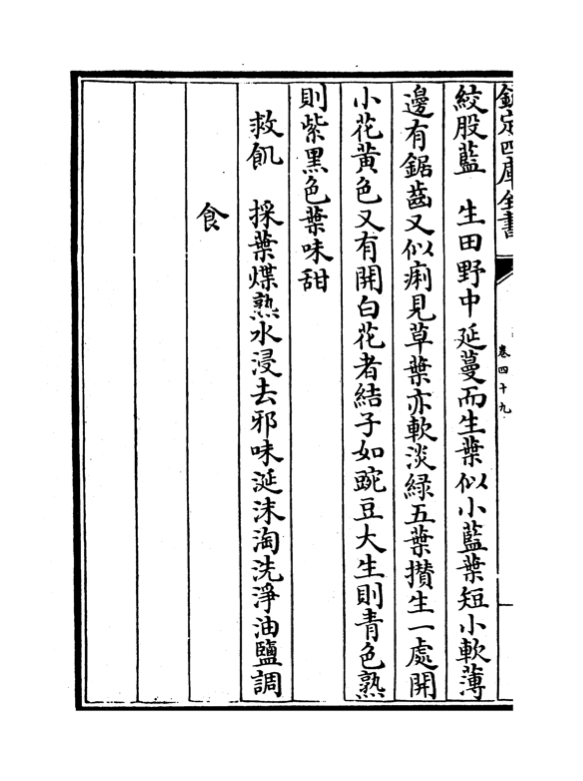 欽定四庫全書
卷四十九
絞股藍　生田野中延蔓而生葉似小藍葉短小軟薄
邊有鋸齒又似痢見草葉亦軟淡綠五葉攅生一處開
小花黃色又有開白花者結子如豌豆大生則青色熟
則紫黑色葉味甜
救飢　採葉煠熟水浸去邪味涎沫淘洗淨油鹽調
食